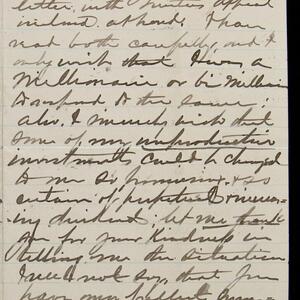 letter, with Miss Appeal
inclosed, at hand. I have
read both carefully, and I
only wish that I was a
Millionaire or bi Millionaire
to respond to the same;
also, I merely wish that
some of my unproductive
investments could be changed
to one so promising, & so
certain of perpetual & increas-
ing dividend; let me thank
you for your kindness in
telling me the situation
I need not say, that you
have my